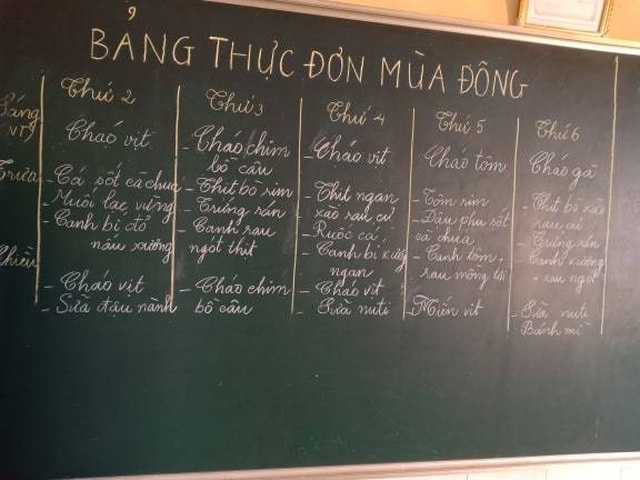 BẢNG THỰC ĐƠN MÙA ĐÔNG
Thứ 2
Thứ 3
Thứ 4
Thứ 5
Thứ 6
Sáng
Cháo vịt
- Cháo chim
bồ câu
- Cháo vịt
Cháo tôm
Cháo gà
Trưa
- Cá sốt cà chua
- Muối lạc, vừng
- Canh bí đỏ
nấu xương
- Thịt bò rim
- Trứng rán
- Canh rau
ngót thịt
- Thịt ngan
xào rau củ
- Ruốc cá
- Canh bí xương
ngan
- Tôm rim
- Đậu phụ sốt
cà chua
- Canh tôm +
rau mồng tơi
- Thịt bò xào
rau củ
- Trứng rán
- Canh xương
rau ngót
Chiều
- Cháo vịt
- Sữa đậu nành
- Cháo chim
bồ câu
- Cháo vịt
- Sữa nuti
- Miến vịt
- Sữa nuti
Bánh mì